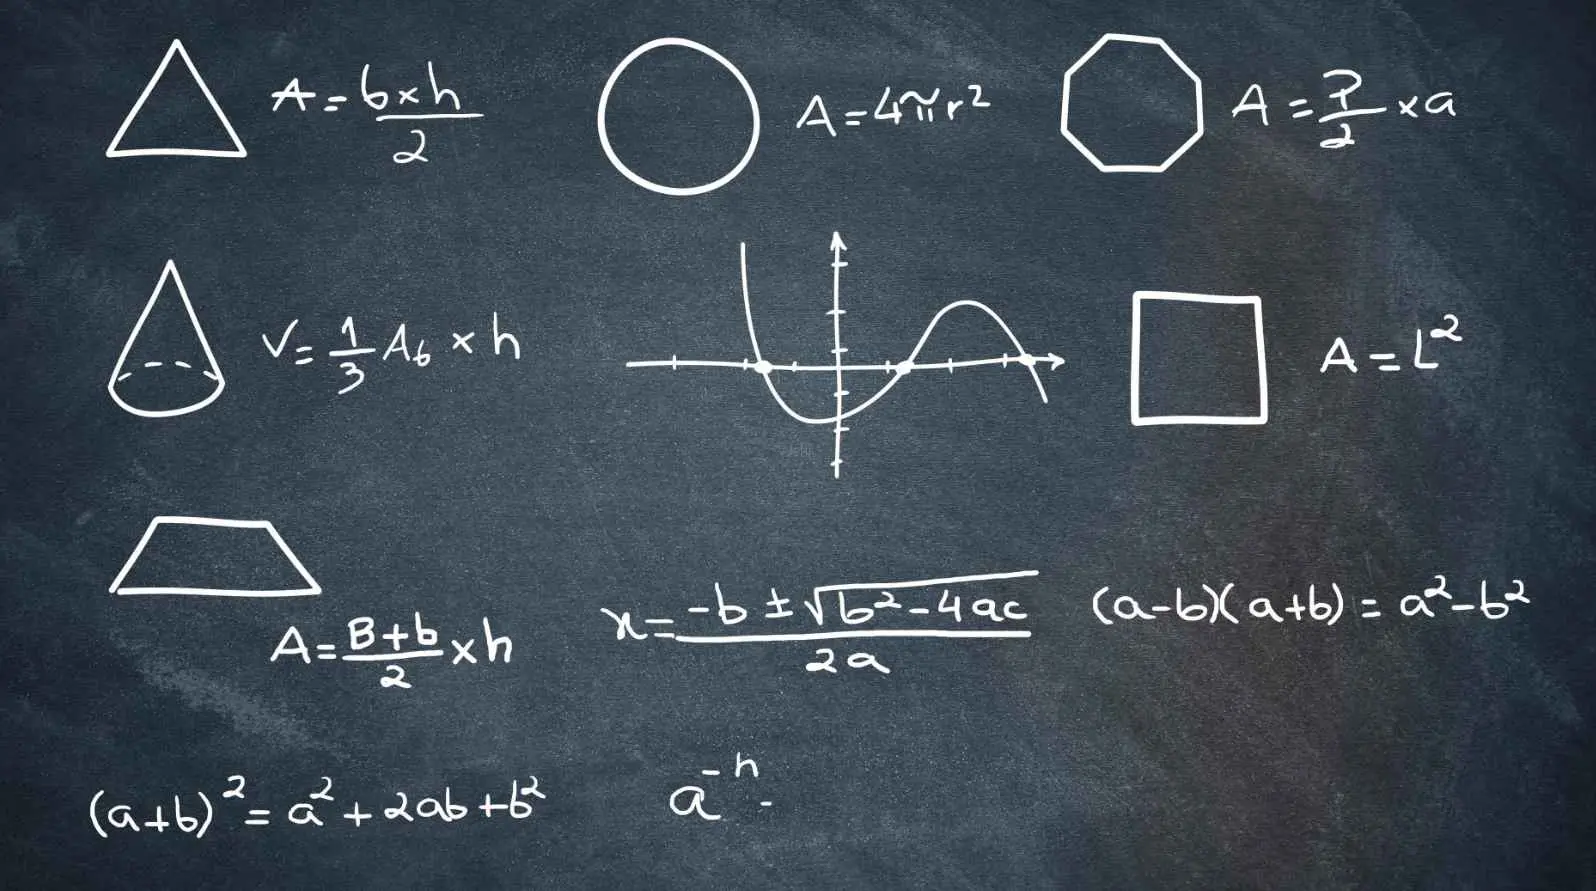 A = b×h/2
A = 4πr²
A = P/2 × a
V = 1/3 A_b × h
A = L²
A = B+b/2 × h
x = -b ± √b² - 4ac/2a
(a-b)(a+b) = a² - b²
(a+b)² = a² + 2ab + b²
a⁻ⁿ -